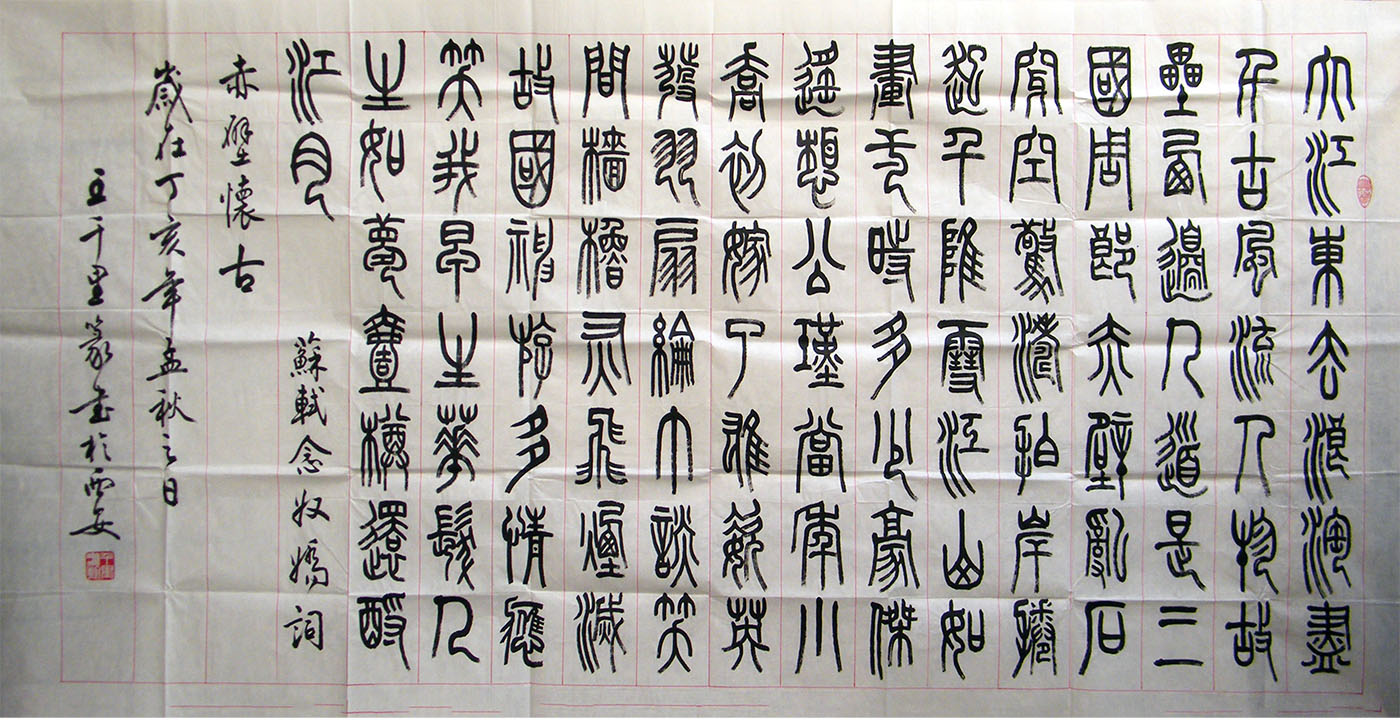 大江東去浪淘盡
千古風流人物故
壘西邊人道是三
國周郎赤壁亂石
穿空驚濤拍岸捲
起千堆雪江山如
畫弌時多少豪傑
遙想公瑾當年小
喬初嫁了雄姿英
發羽扇綸巾談笑
間檣櫓灰飛煙滅
故國神遊多情應
笑我早生華髮人
生如夢壹樽還酹
江月 蘇軾念奴嬌詞
赤壁懷古
歲在丁亥年孟秋之日
王千里篆書於西安